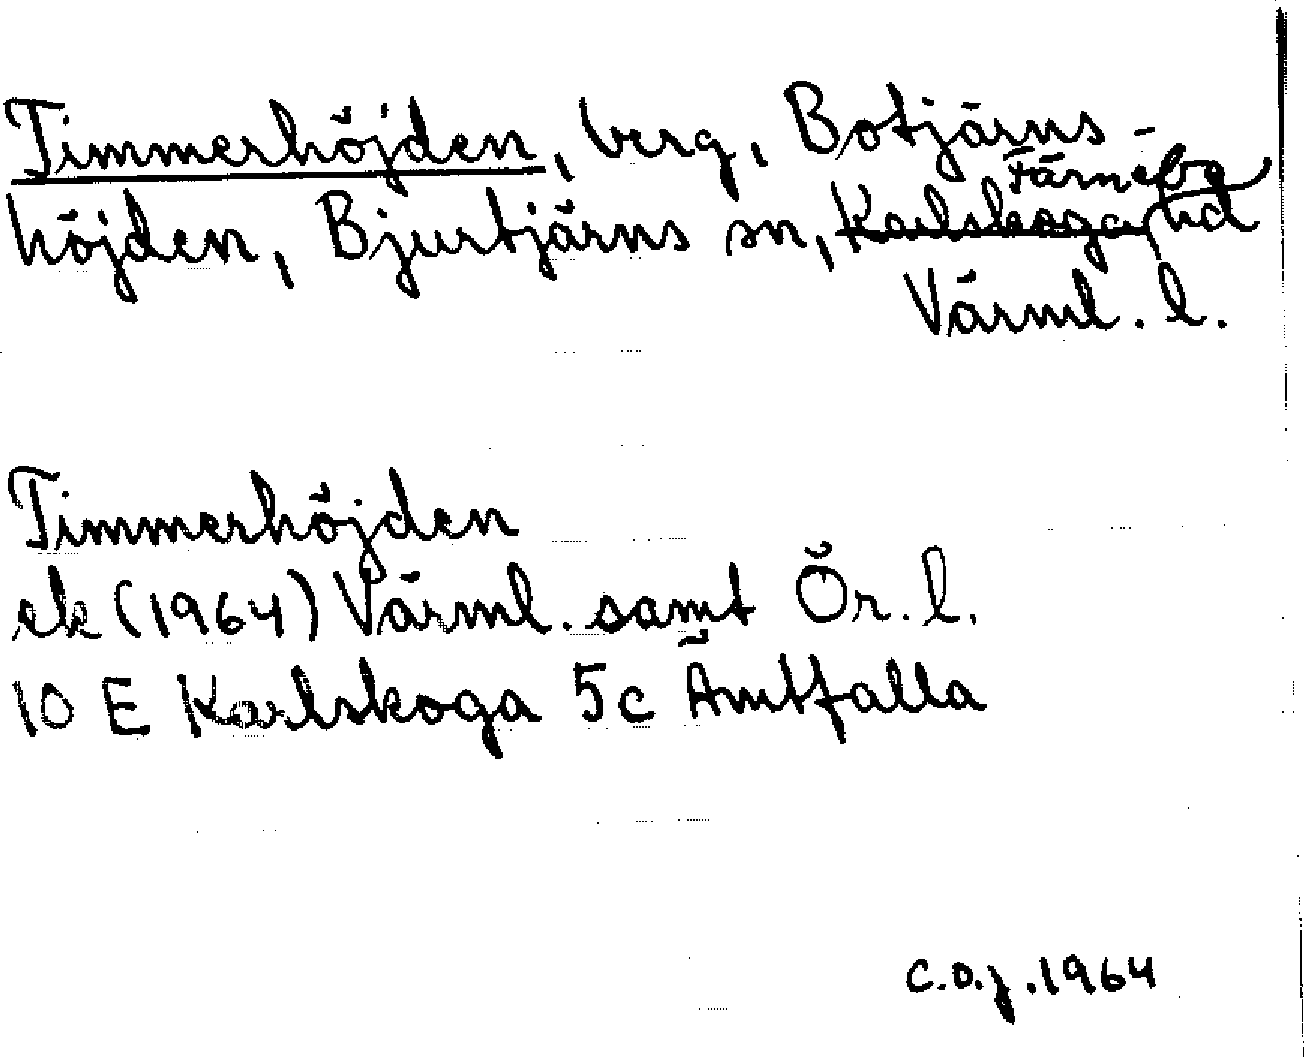 Timmerhöjden, berg, Botjärns-
höjden, Bjurtjärns sn, Karlskoga hd
Färnebo
Värml. l.
Timmerhöjden
ek (1964) Värml. samt Ör. l.
10 E Karlskoga 5c Ämtfalla
C.O.J. 1964